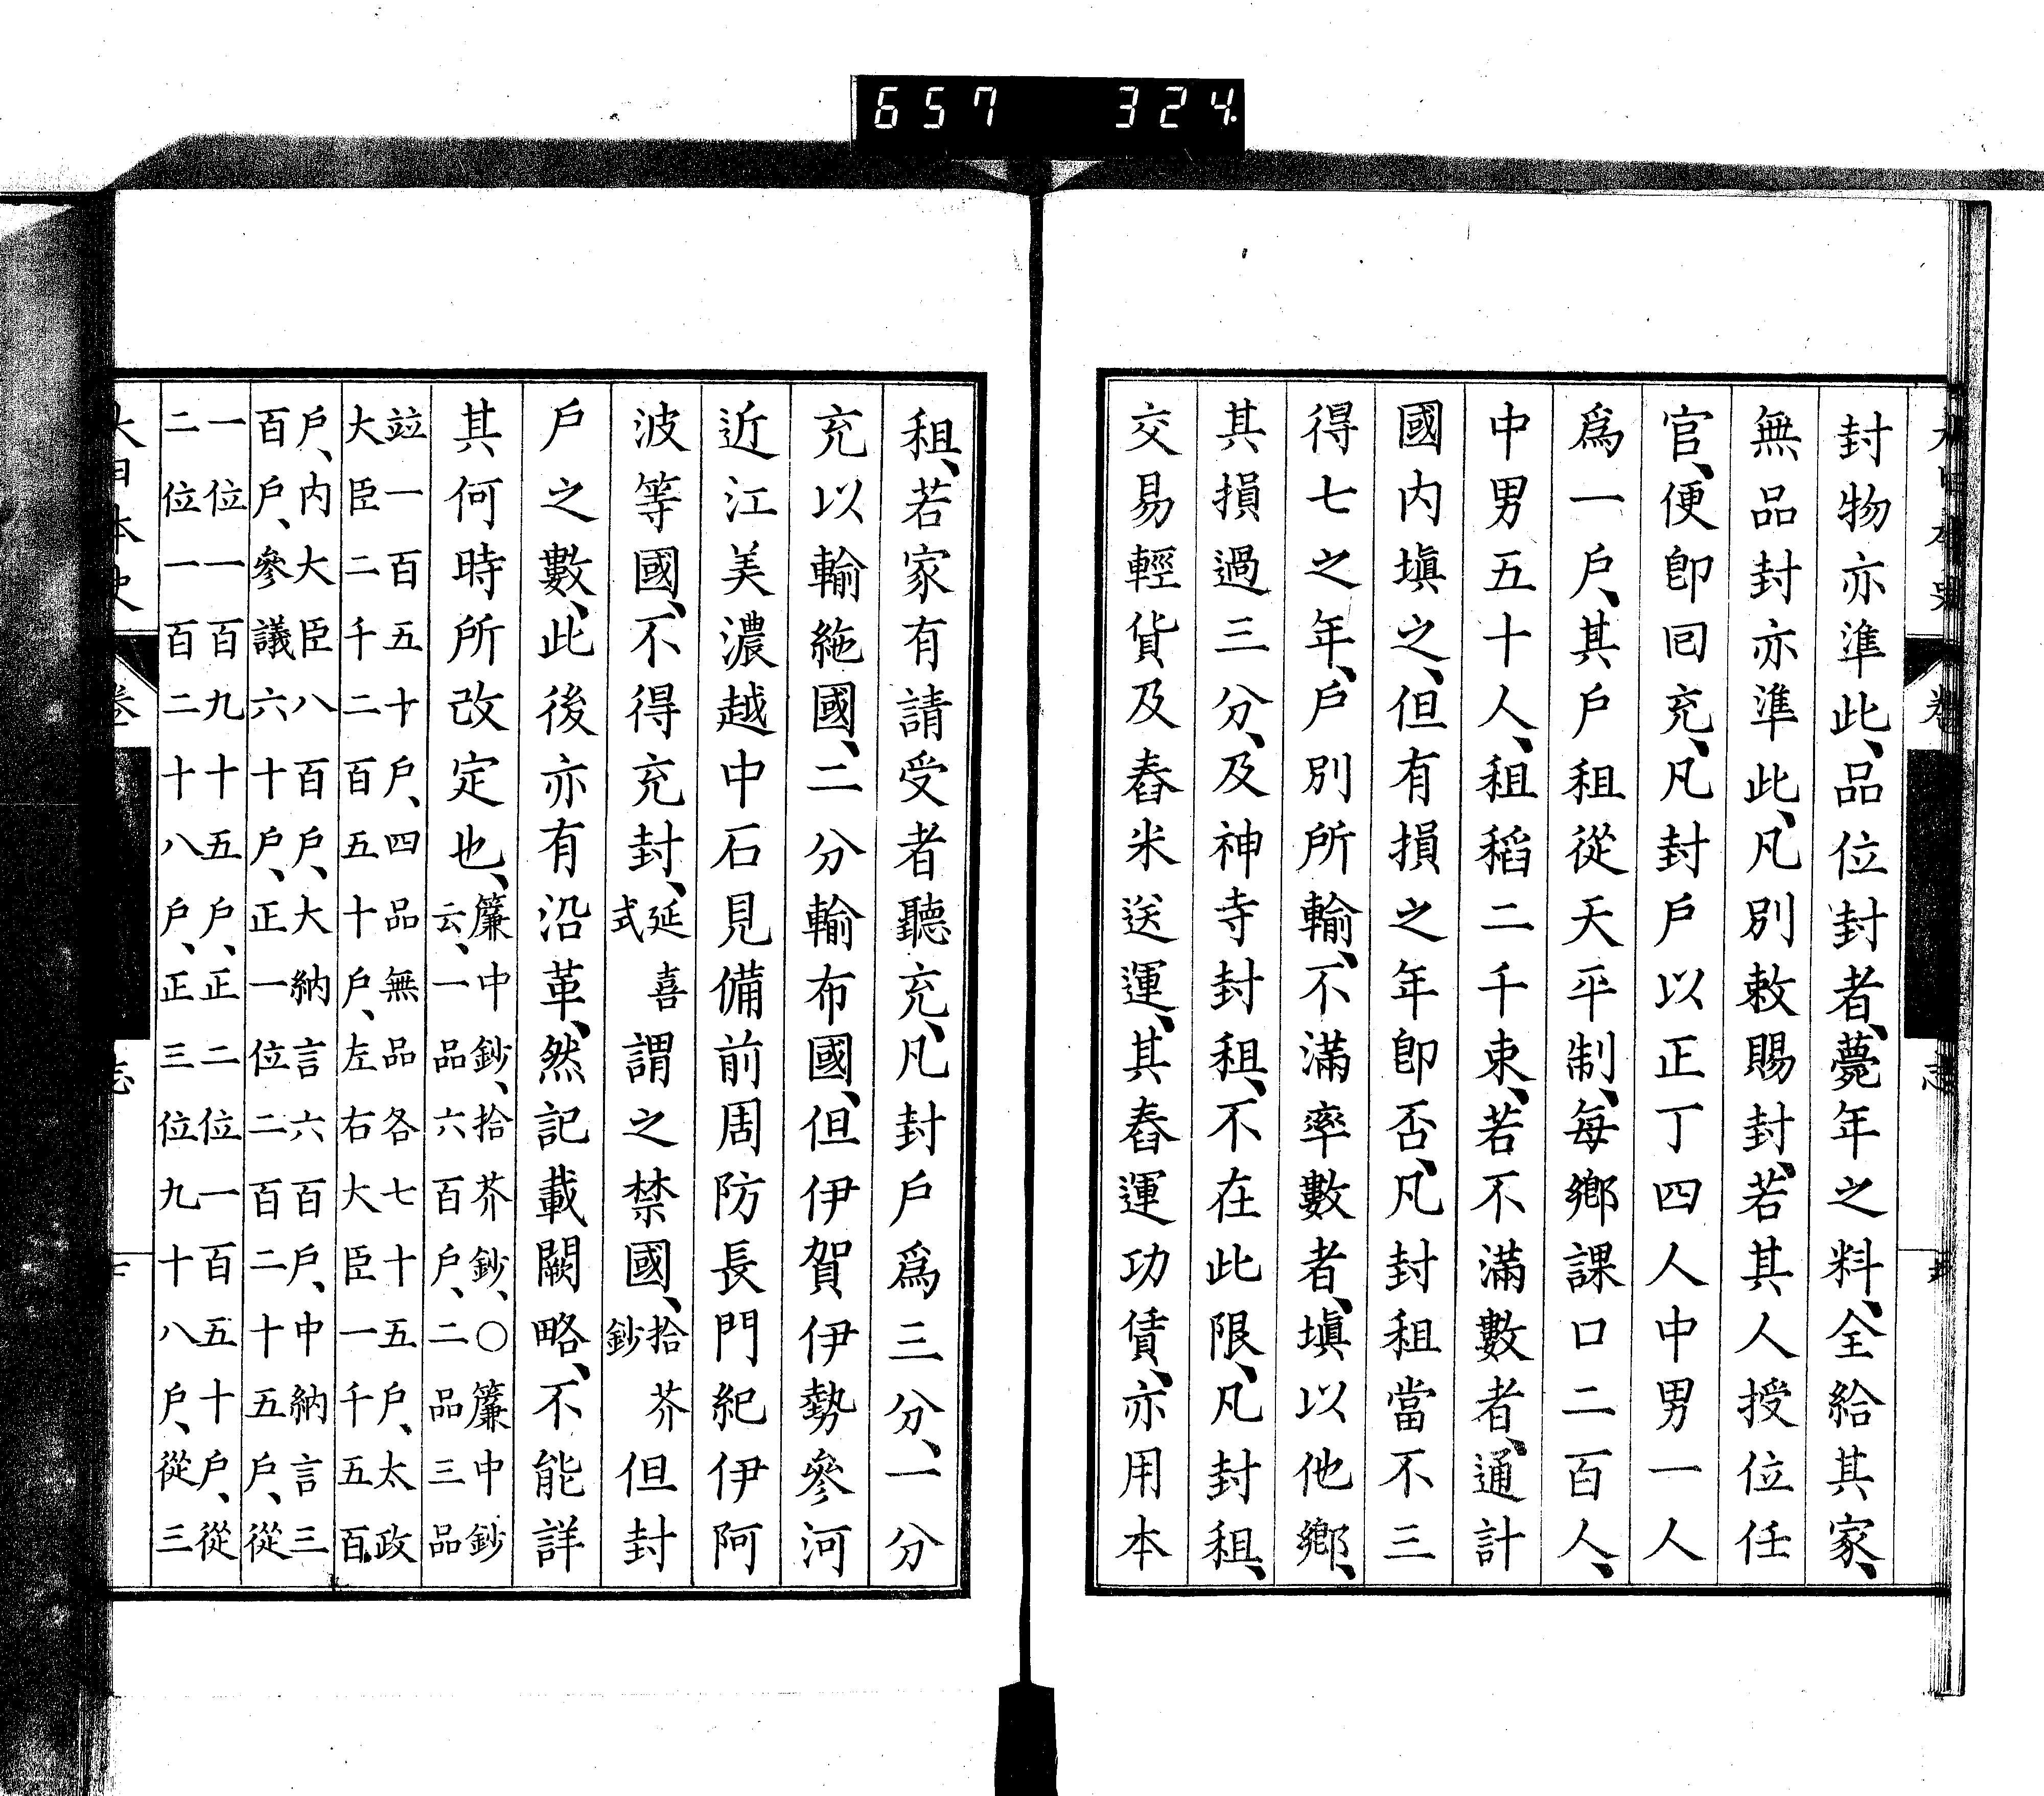 657 324
封物亦準此、品位封者、薨年之料、全給其家、
無品封亦準此、凡別敕賜封、若其人授位任
官、便卽囘充、凡封戶以正丁四人中男一人
爲一戶、其戶租從天平制、每鄕課口二百人、
中男五十人、租稻二千束、若不滿數者、通計
國內塡之、但有損之年卽否、凡封租當不三
得七之年、戶別所輸、不滿率數者、塡以他鄕、
其損過三分、及神寺封租、不在此限、凡封租、
交易輕貨及舂米送運、其舂運功賃、亦用本
租、若家有請受者聽充、凡封戶爲三分、一分
充以輸絁國、二分輸布國、但伊賀伊勢參河
近江美濃越中石見備前周防長門紀伊阿
波等國、不得充封、延喜式謂之禁國、拾芥鈔但封
戶之數、此後亦有沿革、然記載闕略、不能詳
其何時所改定也、簾中鈔、拾芥鈔、○簾中鈔
云、一品六百戶、二品三品
竝一百五十戶、四品無品各七十五戶、太政
大臣二千二百五十戶、左右大臣一千五百
戶、內大臣八百戶、大納言六百戶、中納言三
百戶、參議六十戶、正一位二百二十五戶、從
一位一百九十五戶、正二位一百五十戶、從
二位一百二十八戶、正三位九十八戶、從三
大日本史
卷
志